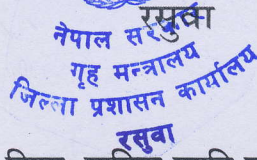 रसुवा
नेपाल सरकार
गृह मन्त्रालय
जिल्ला प्रशासन कार्यालय
रसुवा